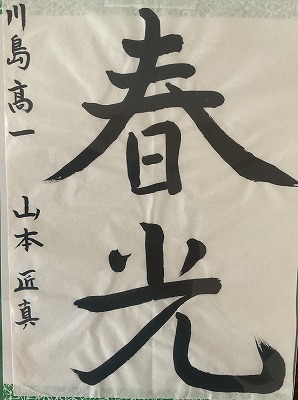 春光
川島高一 山本匠真